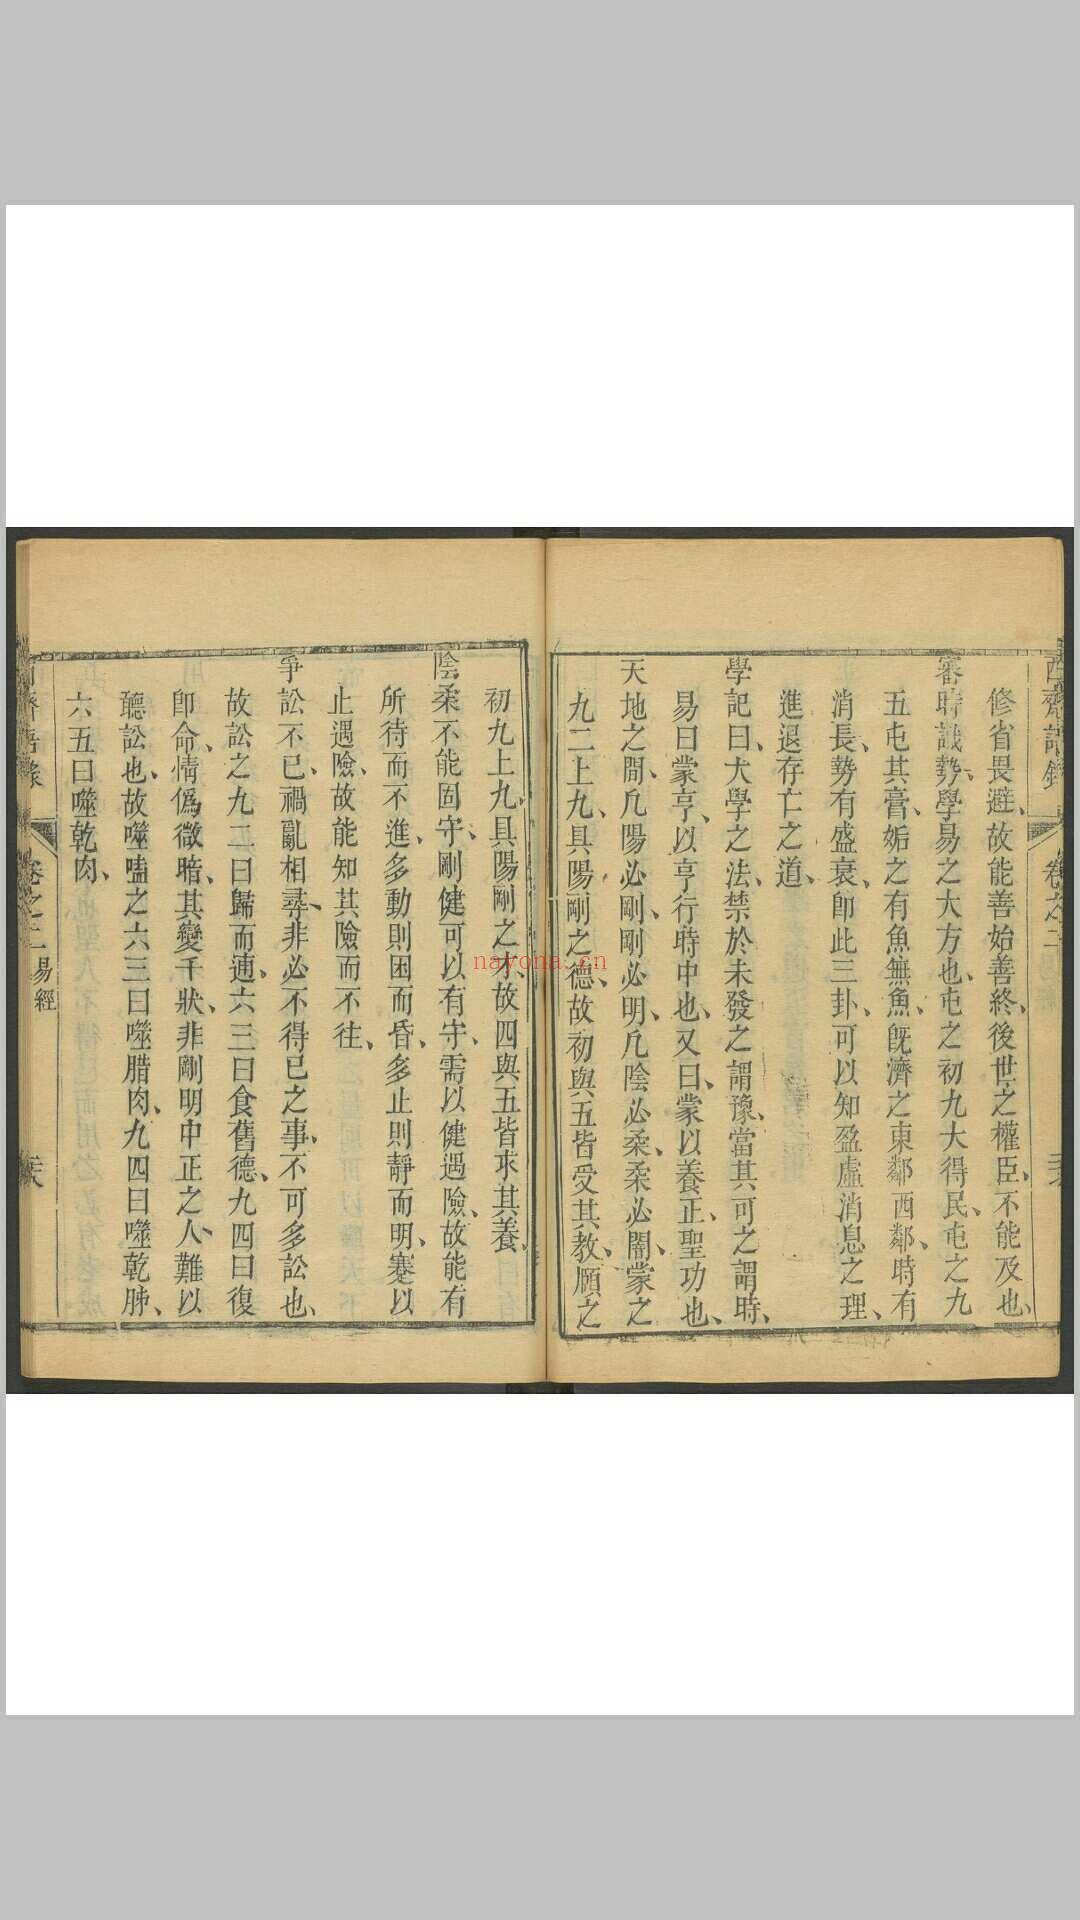 修省畏避、故能善始善終、後世之權臣、不能及也、
審時識勢、學易之大方也、屯之初九大得民、屯之九
五屯其膏、姤之有魚無魚、既濟之東鄰西鄰、時有
消長、勢有盛衰、卽此三卦、可以知盈虛消息之理、
進退存亡之道、
學記曰、大學之法、禁於未發之謂豫、當其可之謂時、
易曰蒙亨、以亨行時中也、又曰、蒙以養正、聖功也、
天地之間、凡陽必剛、剛必明、凡陰必柔、柔必闇、蒙之
九二上九、具陽剛之德、故初與五皆受其教、頤之
初九上九、具陽剛之才、故四與五皆求其養、
陰柔不能固守、剛健可以有守、需以健遇險、故能有
所待而不進、多動則困而昏、多止則靜而明、蹇以
止遇險、故能知其險而不往、
爭訟不已、禍亂相尋、非必不得已之事、不可多訟也、
故訟之九二曰歸而逋、六三曰食舊德、九四曰復
卽命、情僞微暗、其變千狀、非剛明中正之人、難以
聽訟也、故噬嗑之六三曰噬腊肉、九四曰噬乾胏、
六五曰噬乾肉、
卷之二 易經
nayona.cn